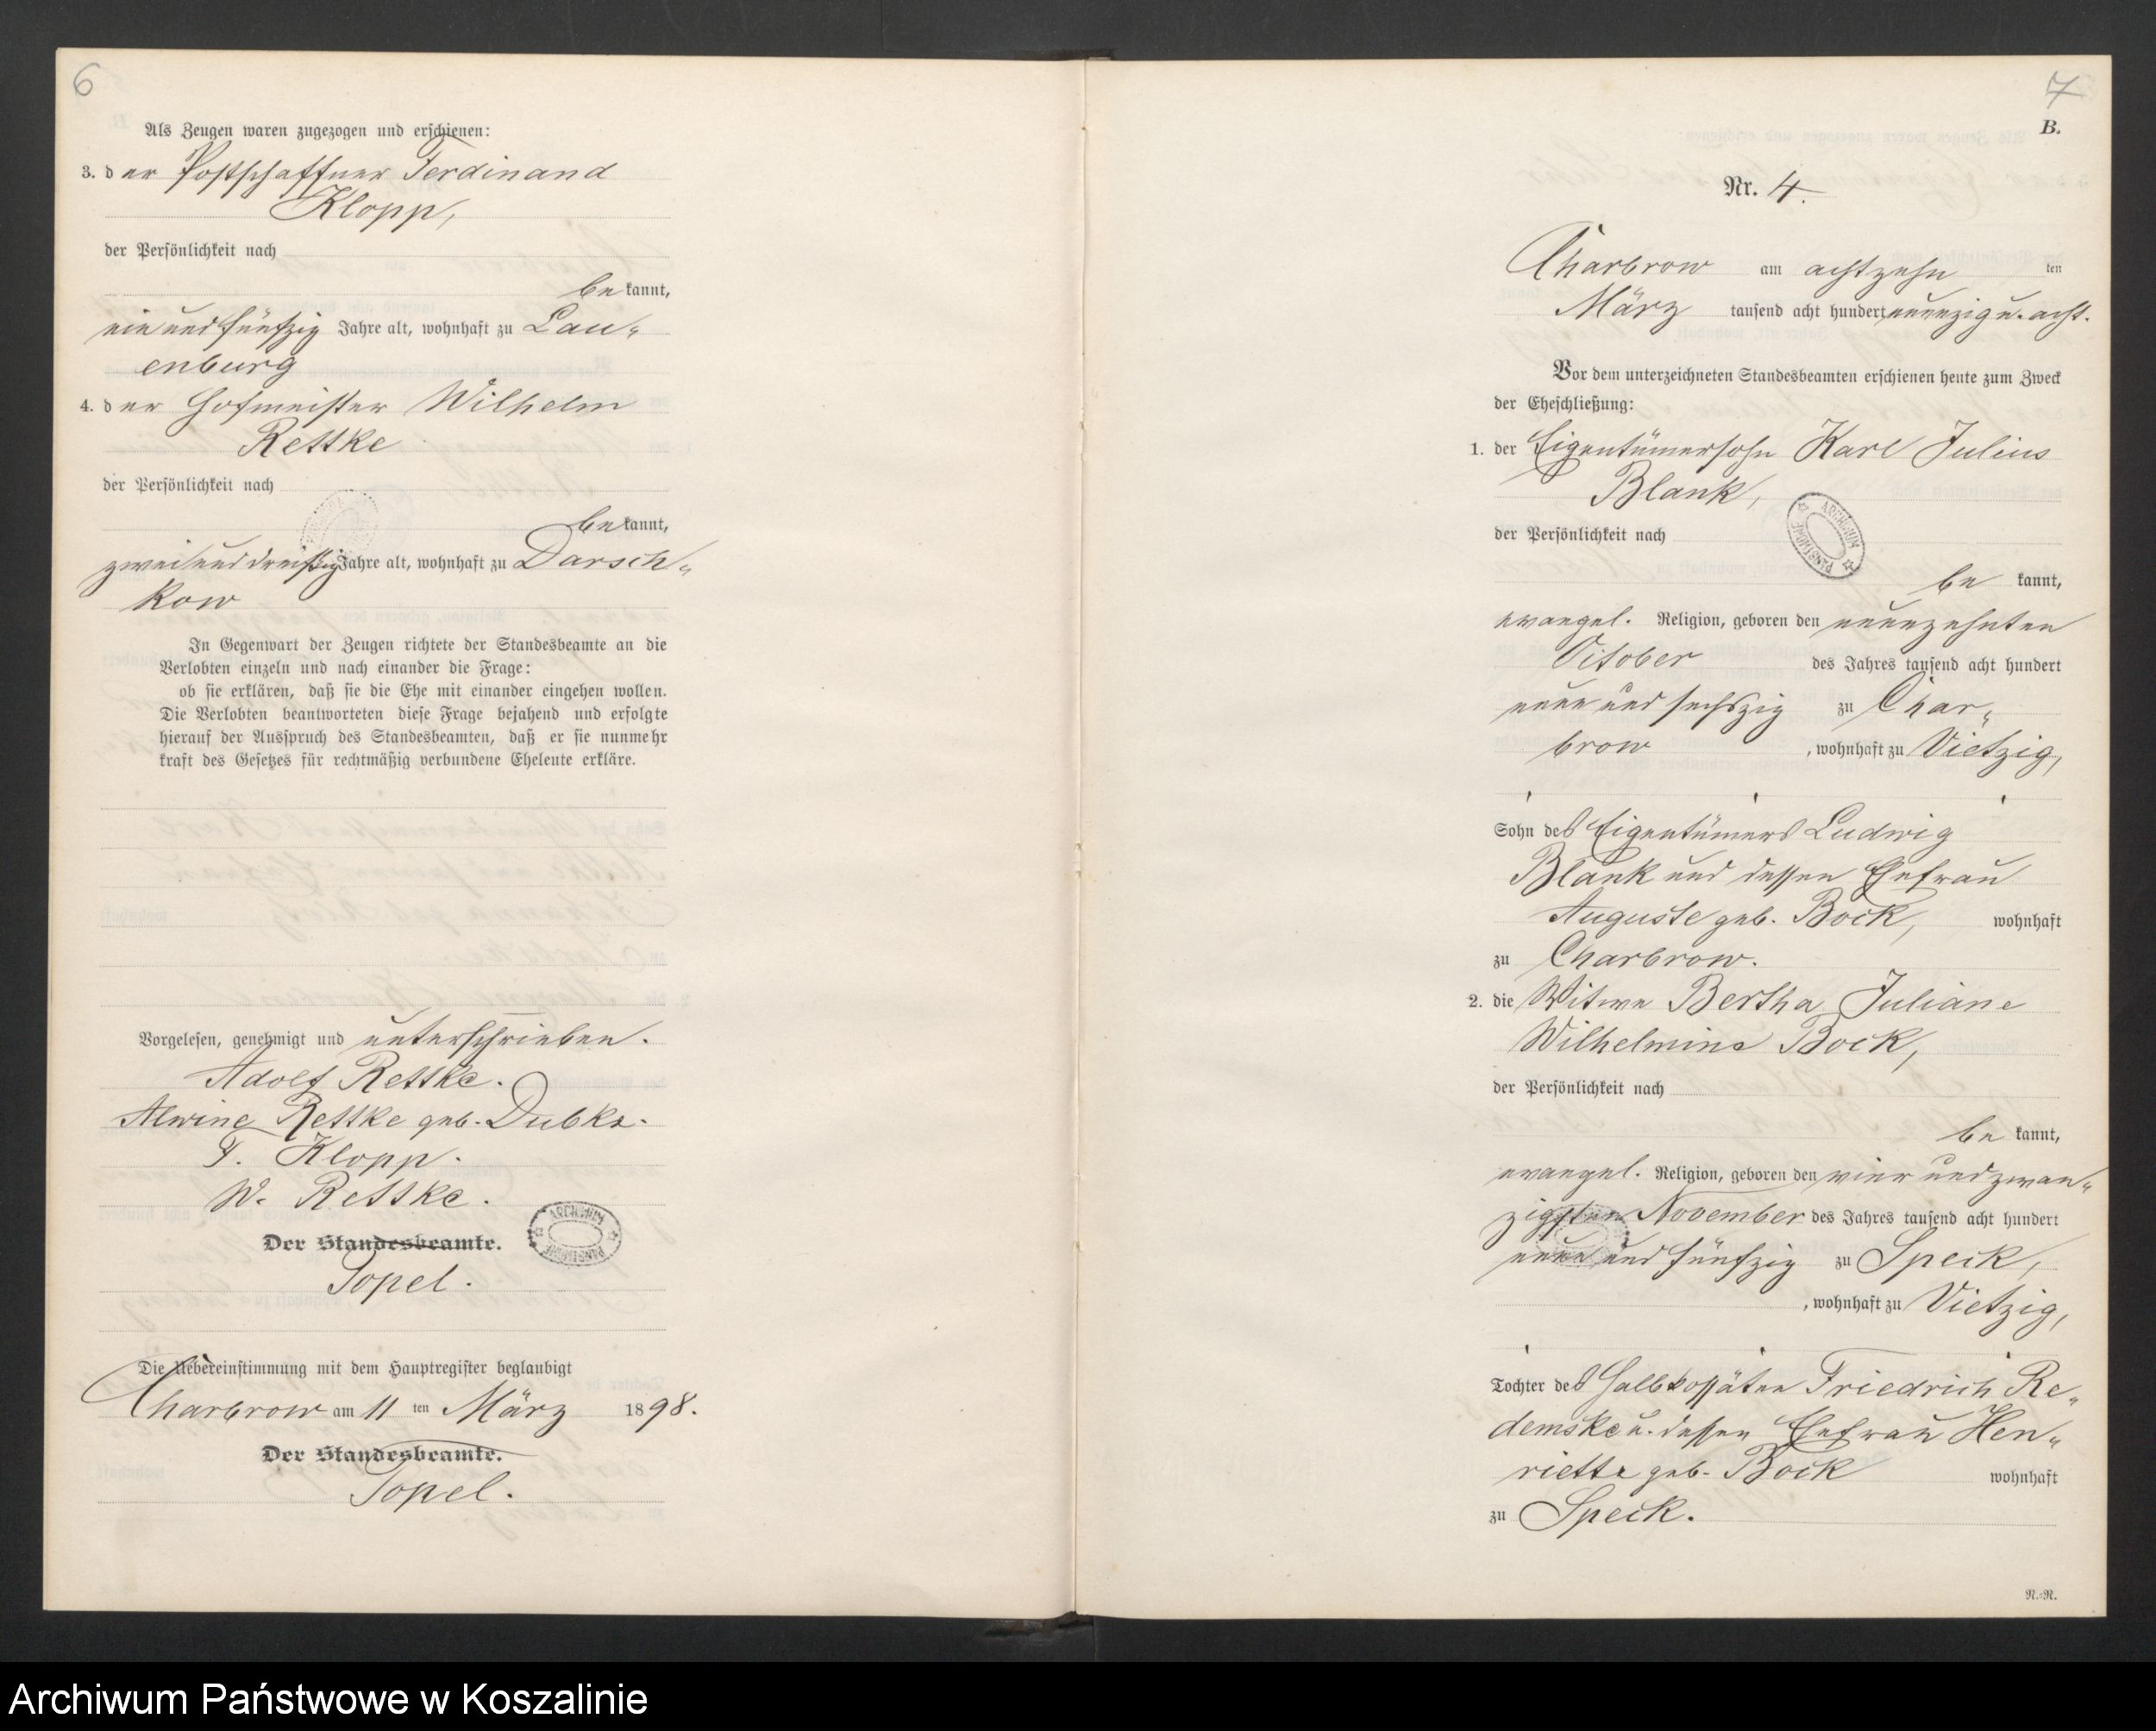 6
Als Zeugen waren zugezogen und erschienen:
3. der Postschaffner Ferdinand
Klopp,
der Persönlichkeit nach
bekannt,
ein und fünfzig Jahre alt, wohnhaft zu Lau-
enburg
4. der Hofmeister Wilhelm
Rettke
der Persönlichkeit nach
bekannt,
zwei und dreißig Jahre alt, wohnhaft zu Darsch-
kow
In Gegenwart der Zeugen richtete der Standesbeamte an die
Verlobten einzeln und nach einander die Frage:
ob sie erklären, daß sie die Ehe mit einander eingehen wollen.
Die Verlobten beantworteten diese Frage bejahend und erfolgte
hierauf der Ausspruch des Standesbeamten, daß er sie nunmehr
kraft des Gesetzes für rechtmäßig verbundene Eheleute erkläre.
Vorgelesen, genehmigt und unterschrieben.
Adolf Rettke.
Alwine Rettke geb. Dubke.
F. Klopp.
W. Rettke.
Der Standesbeamte.
Topel.
ARCHIWUM PAŃSTWOWE
Die Uebereinstimmung mit dem Hauptregister beglaubigt
Charbrow am 11 ten März 1898.
Der Standesbeamte.
Topel.
7
B.
Nr. 4.
Charbrow am achtzehn ten
März tausend acht hundert neunzig u. acht.
Vor dem unterzeichneten Standesbeamten erschienen heute zum Zweck
der Eheschließung:
1. der Eigentümersohn Karl Julius
Blank,
der Persönlichkeit nach
ARCHIWUM PAŃSTWOWE
be kannt,
evangel. Religion, geboren den neunzehnten
October des Jahres tausend acht hundert
neun und sechszig zu Char-
brow , wohnhaft zu Vietzig,
Sohn des Eigentümers Ludwig
Blank und dessen Ehefrau
Auguste geb. Bock, wohnhaft
zu Charbrow.
2. die Witwe Bertha Juliane
Wilhelmine Bock,
der Persönlichkeit nach
be kannt,
evangel. Religion, geboren den vier und zwan-
zigsten November des Jahres tausend acht hundert
neun und fünfzig zu Speck,
, wohnhaft zu Vietzig,
Tochter des Halbkossäten Friedrich Re-
demske u. dessen Ehefrau Hen-
riette geb. Bock wohnhaft
zu Speck.
N.-N.
Archiwum Państwowe w Koszalinie